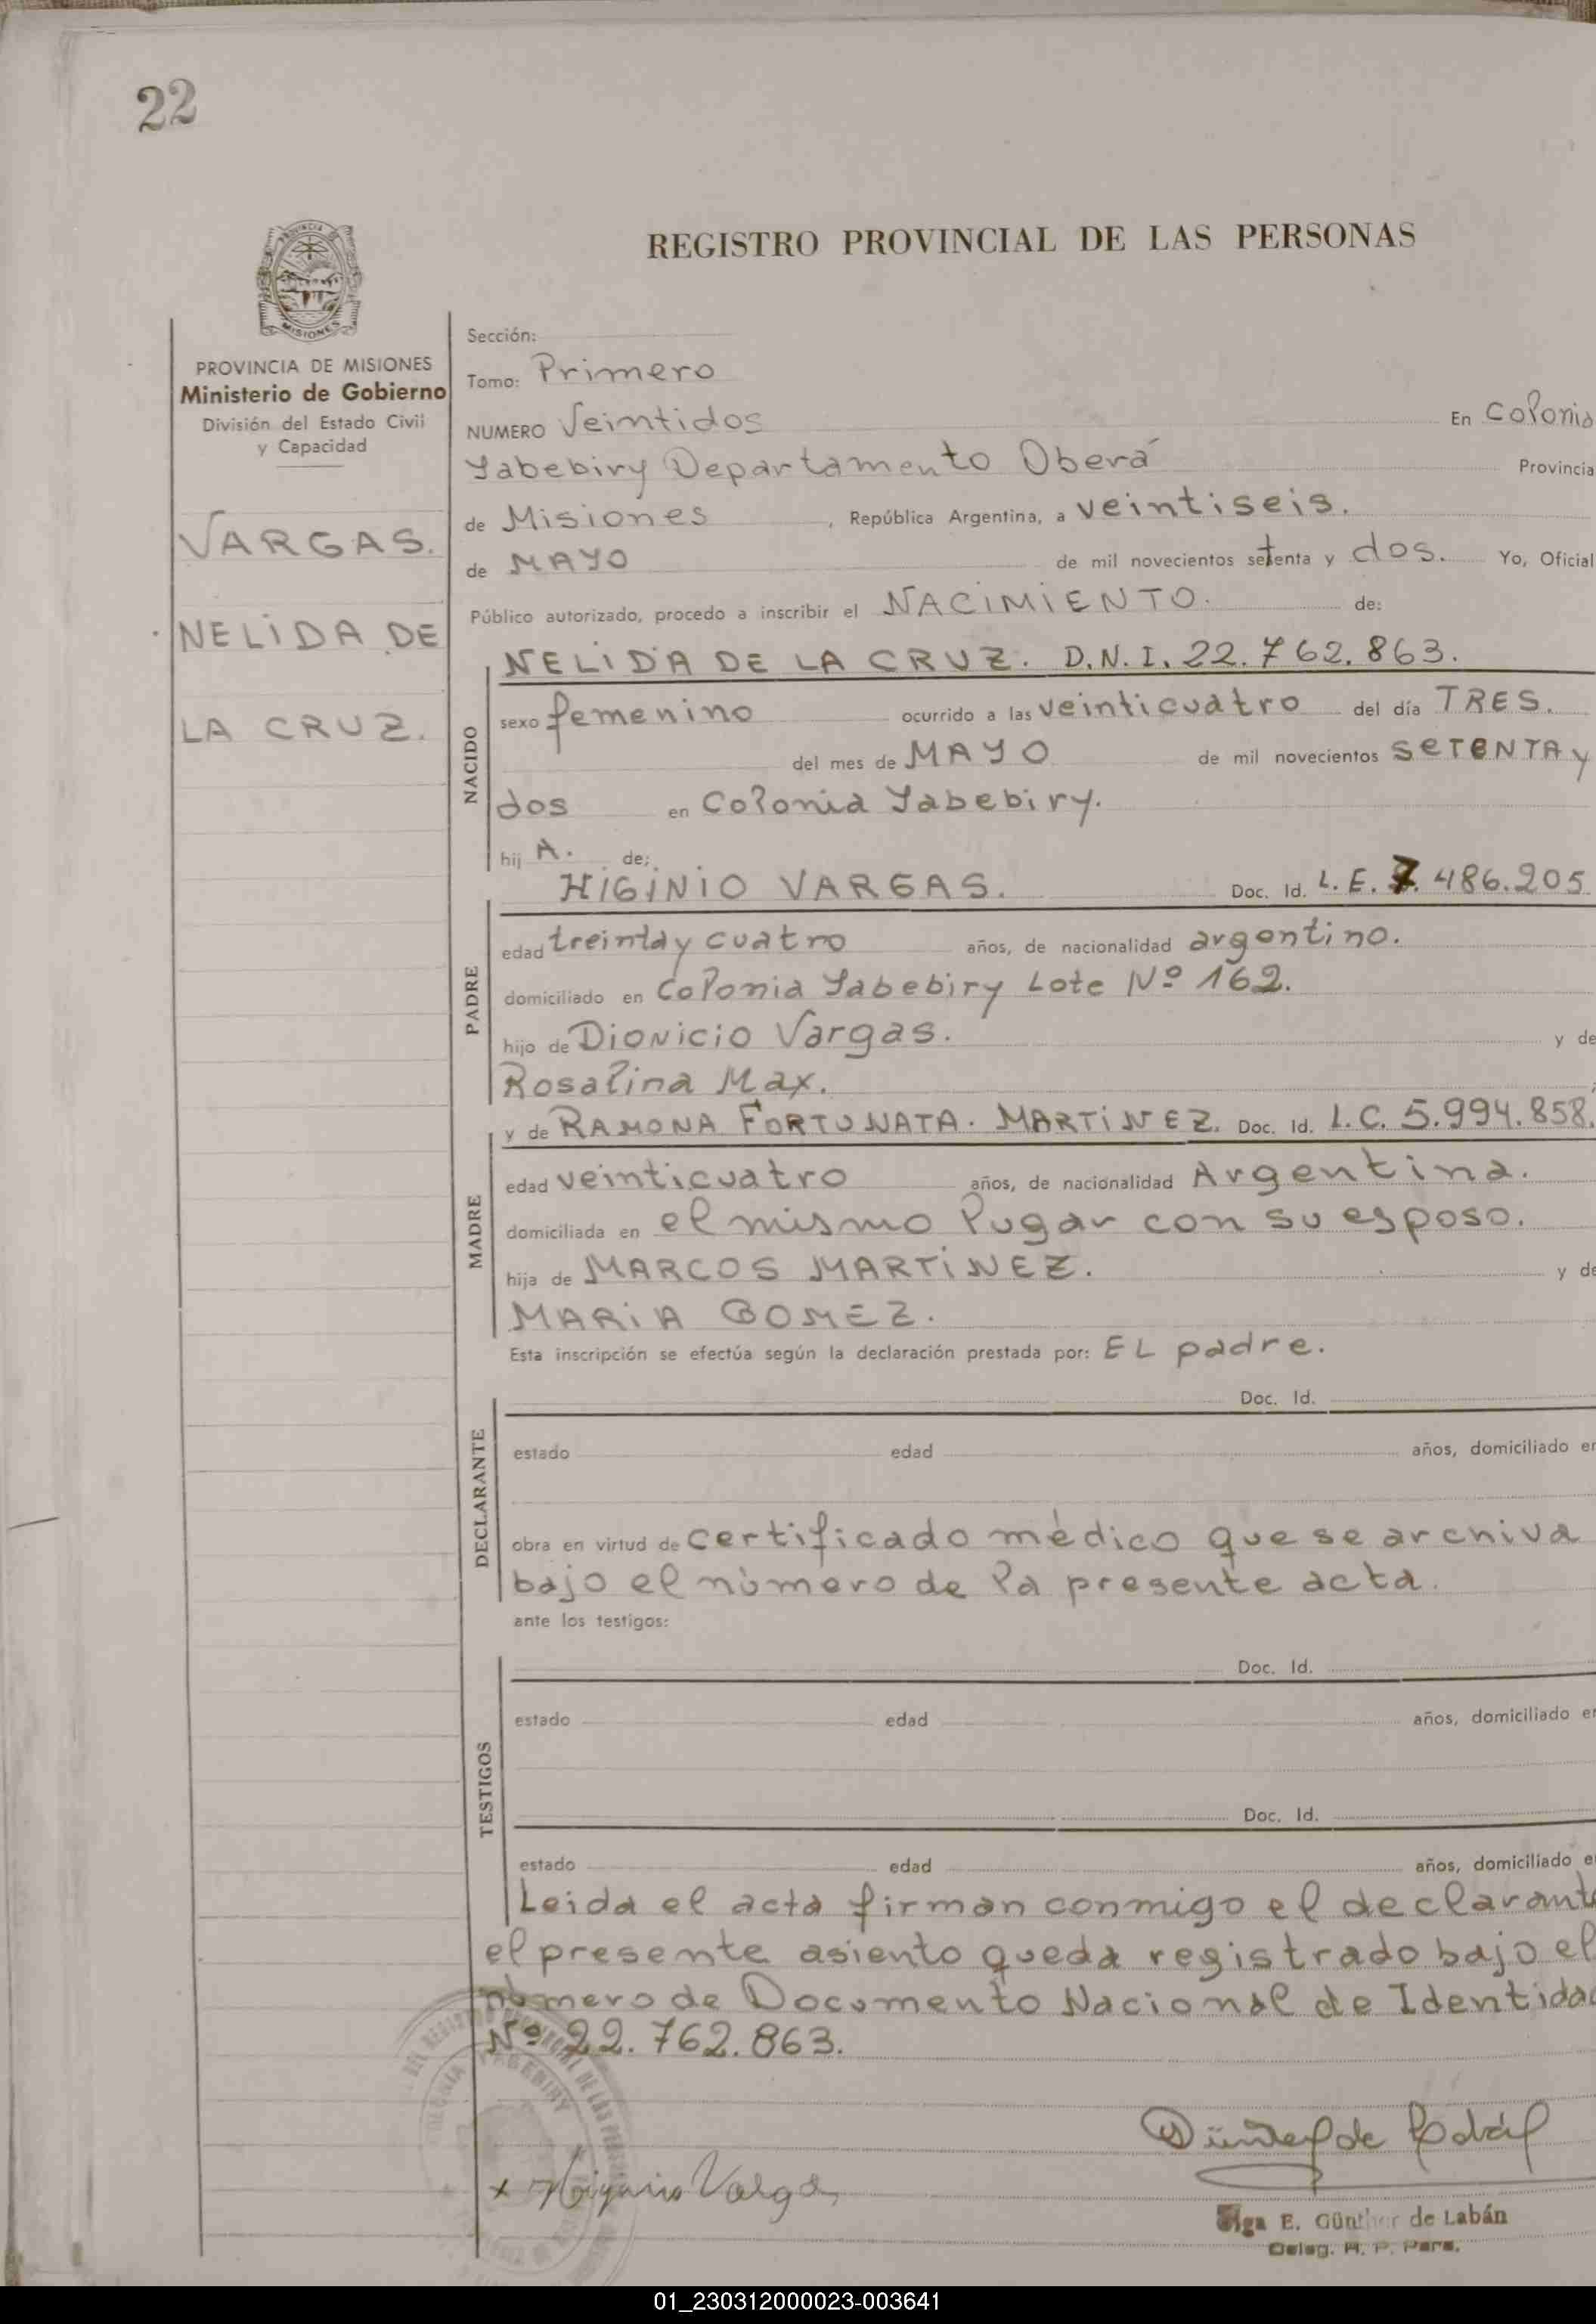 22
REGISTRO PROVINCIAL DE LAS PERSONAS
PROVINCIA DE
MISIONES
PROVINCIA DE MISIONES
Ministerio de Gobierno
División del Estado Civil
y Capacidad
VARGAS.
NELIDA DE
LA CRUZ.
Sección:
Tomo: Primero
NUMERO Veintidos En Colonia
Yabebiry Departamento Oberá Provincia
de Misiones, República Argentina, a veintiseis.
de MAYO de mil novecientos setenta y dos. Yo, Oficial
Público autorizado, procedo a inscribir el NACIMIENTO. de:
NELIDA DE LA CRUZ. D.N.I. 22.762.863.
NACIDO
sexo femenino ocurrido a las veinticuatro del día TRES.
del mes de MAYO de mil novecientos SETENTA y
dos en Colonia Yabebiry.
hij A. de:
HIGINIO VARGAS. Doc. Id. L.E. 7. 486.205
PADRE
edad treinta y cuatro años, de nacionalidad argentino.
domiciliado en Colonia Yabebiry Lote Nº 162.
hijo de Dionicio Vargas. y de
Rosalina Max.
y de RAMONA FORTUNATA. MARTINEZ. Doc. Id. L.C. 5.994.858.
MADRE
edad veinticuatro años, de nacionalidad Argentina.
domiciliada en el mismo lugar con su esposo.
hija de MARCOS MARTINEZ. y de
MARIA GOMEZ.
Esta inscripción se efectúa según la declaración prestada por: EL padre.
Doc. Id.
DECLARANTE
estado edad años, domiciliado en
obra en virtud de certificado médico que se archiva
bajo el número de la presente acta.
ante los testigos:
Doc. Id.
TESTIGOS
estado edad años, domiciliado en
Doc. Id.
estado edad años, domiciliado e
Leida el acta firman conmigo el declarant
el presente asiento queda registrado bajo el
número de Documento Nacional de Identidad
Nº 22.762.863.
x Higinio Vargas
Olga E. Günther de Labán
Deleg. R. P. Pers.
01_230312000023-003641